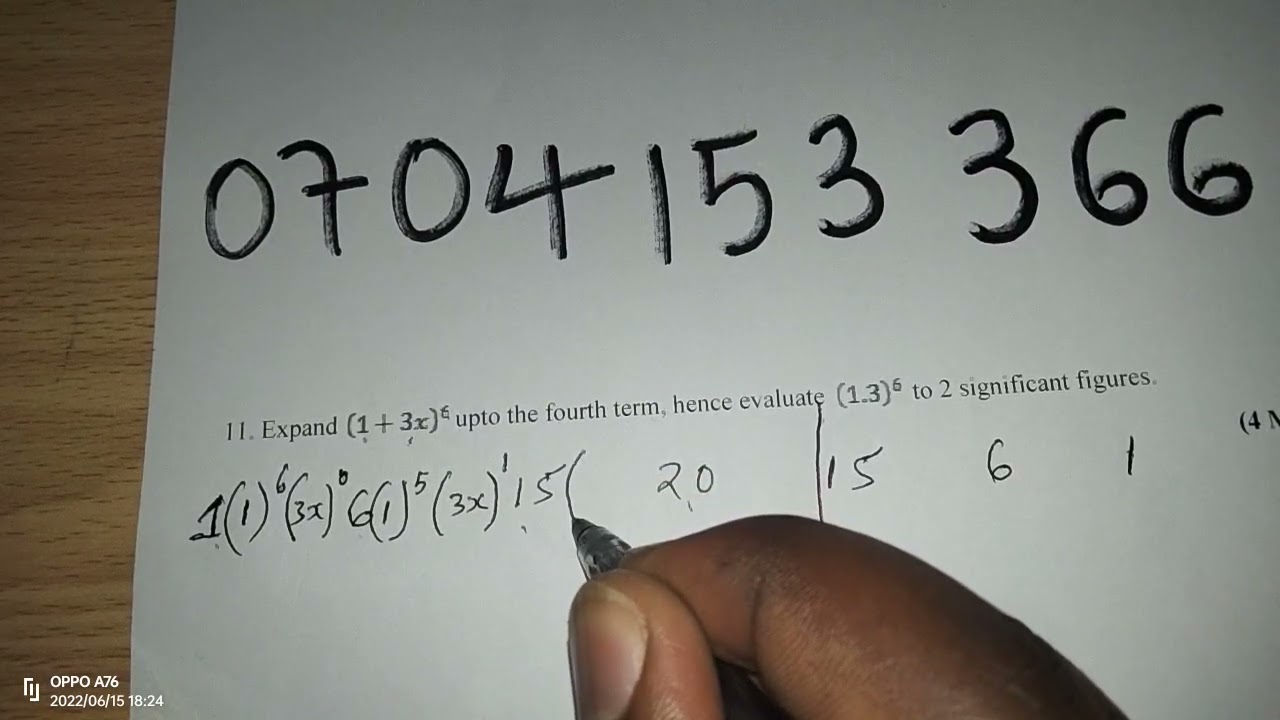 0704153 366
11. Expand (1 + 3x)⁶ upto the fourth term, hence evaluate (1.3)⁶ to 2 significant figures.
(4
1(1)⁶(3x)⁰ 6(1)⁵(3x)¹ 15( 20 15 6 1
OPPO A76
2022/06/15 18:24